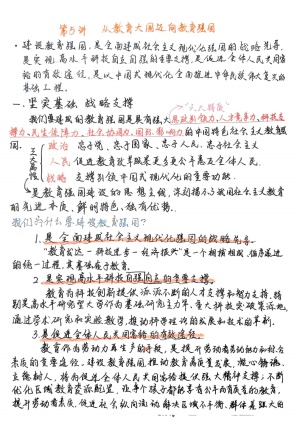 第5讲 从教育大国迈向教育强国
·建设教育强国,是全面建成社会主义现代化强国的战略先导,
是实现高水平科技自立自强的重要支撑,是促进全体人民共同
富裕的有效途径,是以中国式现代化全面推进中华民族伟大复兴的
基础工程。
一、坚实基础 战略支撑
"六大特质"
我们要建成的教育强国是具有强大思政引领力、人才竞争力、科技支
撑力、民生保障力、社会协同力、国际影响力的中国特色社会主义教育
强国。
三大属性
政治 忠于党、忠于国家、忠于人民、忠于社会主义
人民 促进教育改革成果更多更公平惠及全体人民。
战略 支撑引领中国式现代化的重要功能。
是教育强国建设的思想主线,深刻揭示了我国社会主义教育
的先进本质、鲜明特色、独有优势。
我们为什么要建设教育强国?
1.是全面建成社会主义现代化强国的战略先导。
"教育公这一科技进步一经济振兴"是一个相辅相成、循序递进
的统一过程,其基础在于教育。
2.是实现高水平科技自立自强的重要支撑。
教育为科技创新提供源源不断的人才支撑和智力支持,特
别是高水平研究型大学作为基础研究主力军、重大科技突破策源地,
通过学术研究和实验教学,推动科学理论的发展和技术的革新。
3.是促进全体人民共同富裕的有效途径。
教育作为劳动力再生产的手段,是提升劳动者劳动能力和综合
素质的重要途径。建设教育强国推动教育高质量发展,凝心铸魂、
立德树人,将为促进全体人民共同富裕提供强大精神支撑;不断
优化区域教育资源配置,让孩子都能享有公平而有质量的教育,
提升劳动者素质,促进社会纵向流动,解决区域不平衡、群体差距大的